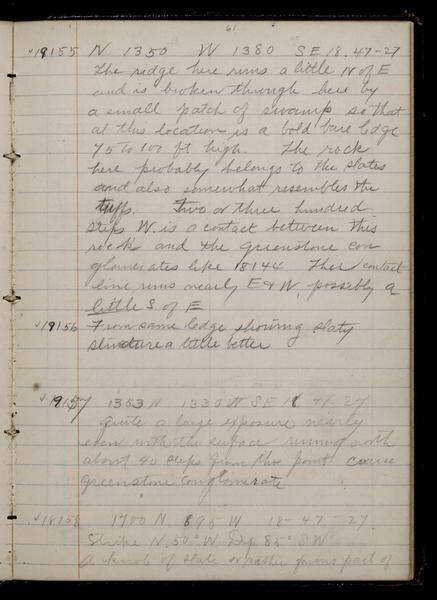 61
√19155 N 1350 W 1380 SE 18. 47-27
The ridge here runs a little N of E
and is broken through here by
a small patch of swamp so that
at this location is a bold bare ledge
75 to 100 ft high. The rock
here probably belongs to the slates
and also somewhat resembles the
tuffs. Two or three hundred
steps W. is a contact between this
rock and the greenstone con
glomerates like 18144. This contact
line runs nearly E & W, possibly a
little S of E
√19156 From same ledge showing slaty
structure a little better
√19157 1353 N 1330 W SE 18 47-27
Quite a large exposure nearly
even with the surface running north
about 40 steps from this point coarse
greenstone conglomerate
√18158 1700 N 895 W 18-47-27.
Strike N. 50° W Dip 85° SW
A knob of slate forms part of